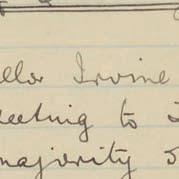 ller Irvine
eeting to
majority